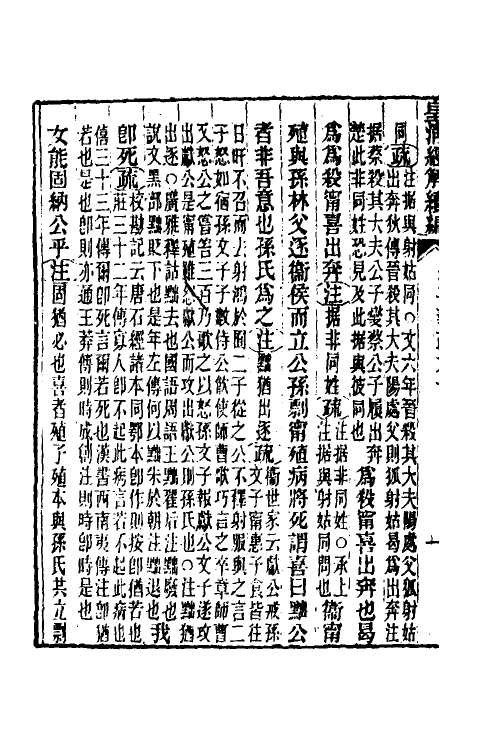 皇清經解續編
同疏注据與射姑同○文六年晉殺其大夫陽處父狐射姑
出奔狄傳晉殺其大夫陽處父則狐射姑曷爲出奔注
据蔡殺其大夫公子燮蔡公子履出奔
楚此非同姓恐見及此据與彼同也
爲殺甯喜出奔也曷
爲爲殺甯喜出奔注据非同姓疏
注据非同姓○承上
注据與射姑同問也
衞甯
殖與孫林父逐衞侯而立公孫剽甯殖病將死謂喜曰黜公
者非吾意也孫氏爲之注黜猶出逐疏
衞世家云獻公戒孫
文子甯惠子食皆往
日旰不召而去射鴻於囿二子從之公不釋射服與之言二
子怒如宿孫文子子數侍公飲使師曹歌巧言之卒章師曹
又怒公之嘗笞三百乃歌之以怒孫文子報獻公文子遂攻
出獻公是甯殖雖怨獻公而攻出獻公則孫氏也○注黜猶
出逐○廣雅釋詁黜去也國語周語王黜翟后注黜廢也
說文黑部黜貶下也是年左傳何以黜朱於朝注黜退也
我
卽死疏
校勘記云唐石經諸本同鄂本卽作則按卽猶若也
莊三十二年傳寡人卽不起此病言若不起此病也
僖三十三年傳爾卽死言爾若死也漢書西南夷傳注卽猶
若也是也卽則亦通王莽傳則時成創注則時卽時是也
女能固納公乎注固猶必也喜者殖子殖本與孫氏共立剽